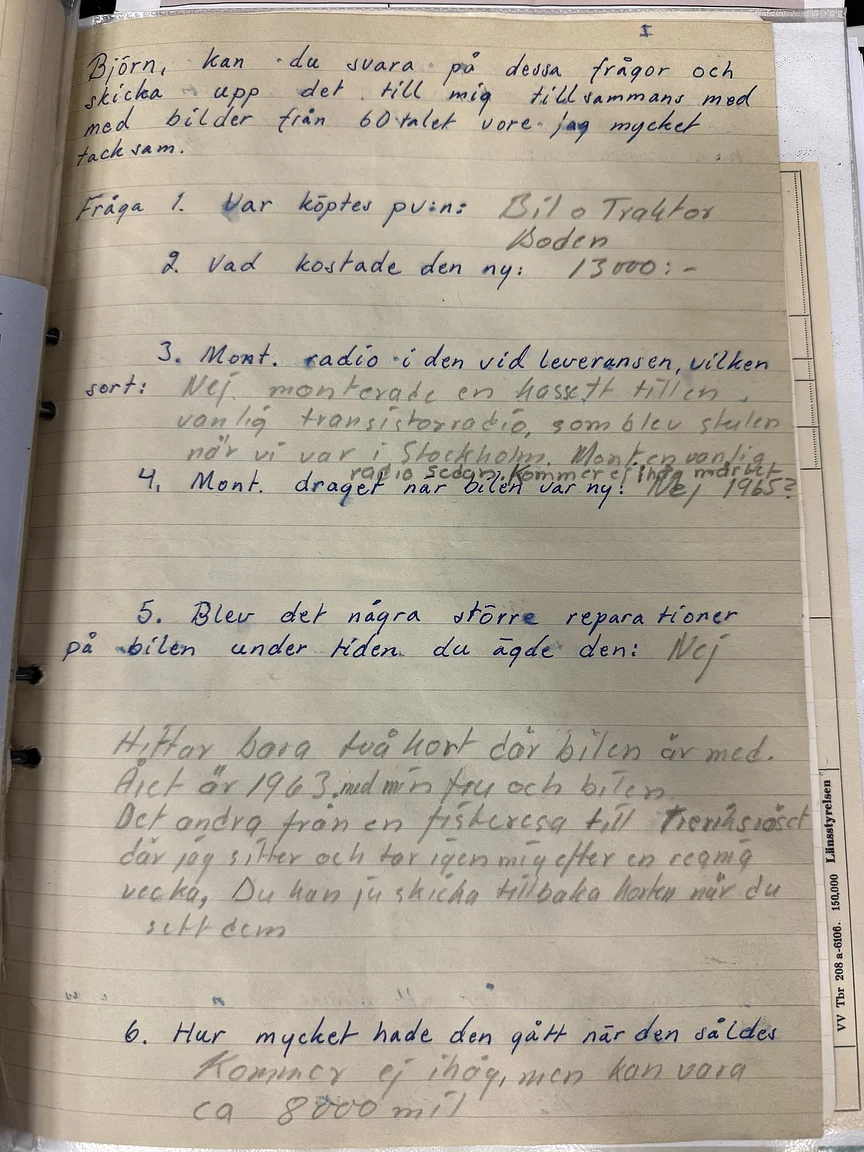 I
Björn, kan du svara på dessa frågor och
skicka upp det till mig tillsammans med
med bilder från 60talet vore jag mycket
tacksam.
Fråga 1. Var köptes pv:n: Bil o Traktor
Boden
2. Vad kostade den ny: 13000:-
3. Mont. radio i den vid leveransen, vilken
sort: Nej. monterade en kassett till en
vanlig transistorradio, som blev stulen
när vi var i Stockholm. Mont. en vanlig
radio sedan. Kommer ej ihåg märket
4. Mont. draget när bilen var ny: Nej 1965?
5. Blev det några större reparationer
på bilen under tiden du ägde den: Nej
Hittar bara två kort där bilen är med.
Året är 1963. med min fru och bilen.
Det andra från en fiskeresa till Treriksröset
där jag sitter och tar igen mig efter en regnig
vecka, Du kan ju skicka tillbaka korten när du
sett dem
6. Hur mycket hade den gått när den såldes
Kommer ej ihåg, men kan vara
ca 8000 mil
VV Tbr 208 a-6106. 150.000 Länsstyrelsen